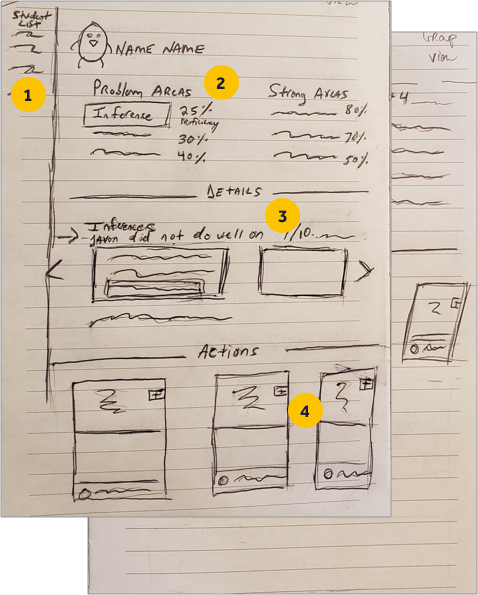 Student
List
1
NAME NAME
Problem Areas
2
Inference
25%
Proficiency
30%
40%
Strong Areas
80%
70%
50%
DETAILS
3
Inferences
Javon did not do well on 7/10
Actions
4
View
Group
View
4